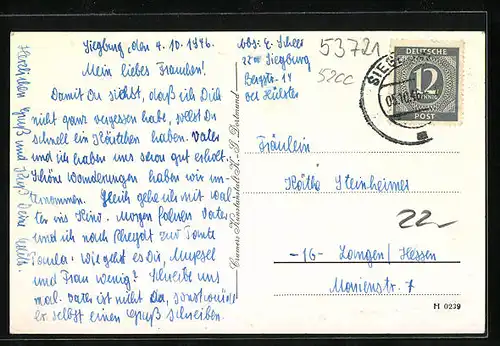 Siegburg, den 4.10.1946.
Mein liebes Frauchen!
Damit Du siehst, daß ich Dich
nicht ganz vergessen habe, sollst Du
schnell ein Kärtchen haben. Vater
und ich haben uns schon gut erholt.
Schöne Wanderungen haben wir un-
ternommen. Gleich gehe ich mit Va-
ter ins Kino. Morgen fahren Vater
und ich nach Rheydt zur Tante
Wie geht es Dir,
und Frau Schreibe uns
mal. Vater ist nicht da, sonst würde
er selbst einen Gruß schreiben.
Herzlichen Gruß und Deine
Abs: E.
22 Siegburg
Bergstr. 14
bei
53721
5200
DEUTSCHE
12
PFENNIG
POST
SIEG
Cramers Kunstanstalt K.-G. Dortmund
Fräulein
Käthe Steinheimer
22-
-16- Langen/Hessen
Marienstr. 7
H 0239